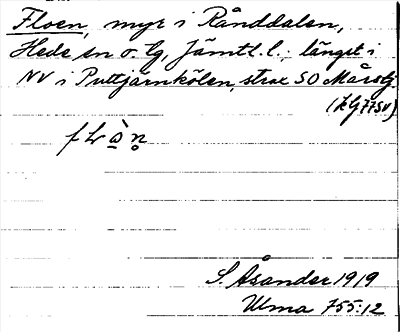 Floen, myr i Rånddalen,
Hede sn o. lg, Jämtl. l.; längst i
NV i Puttjärnkölen, strax SO Mårstj.
(kG77SV)
S. Åsander 1919
Ulma 755:12